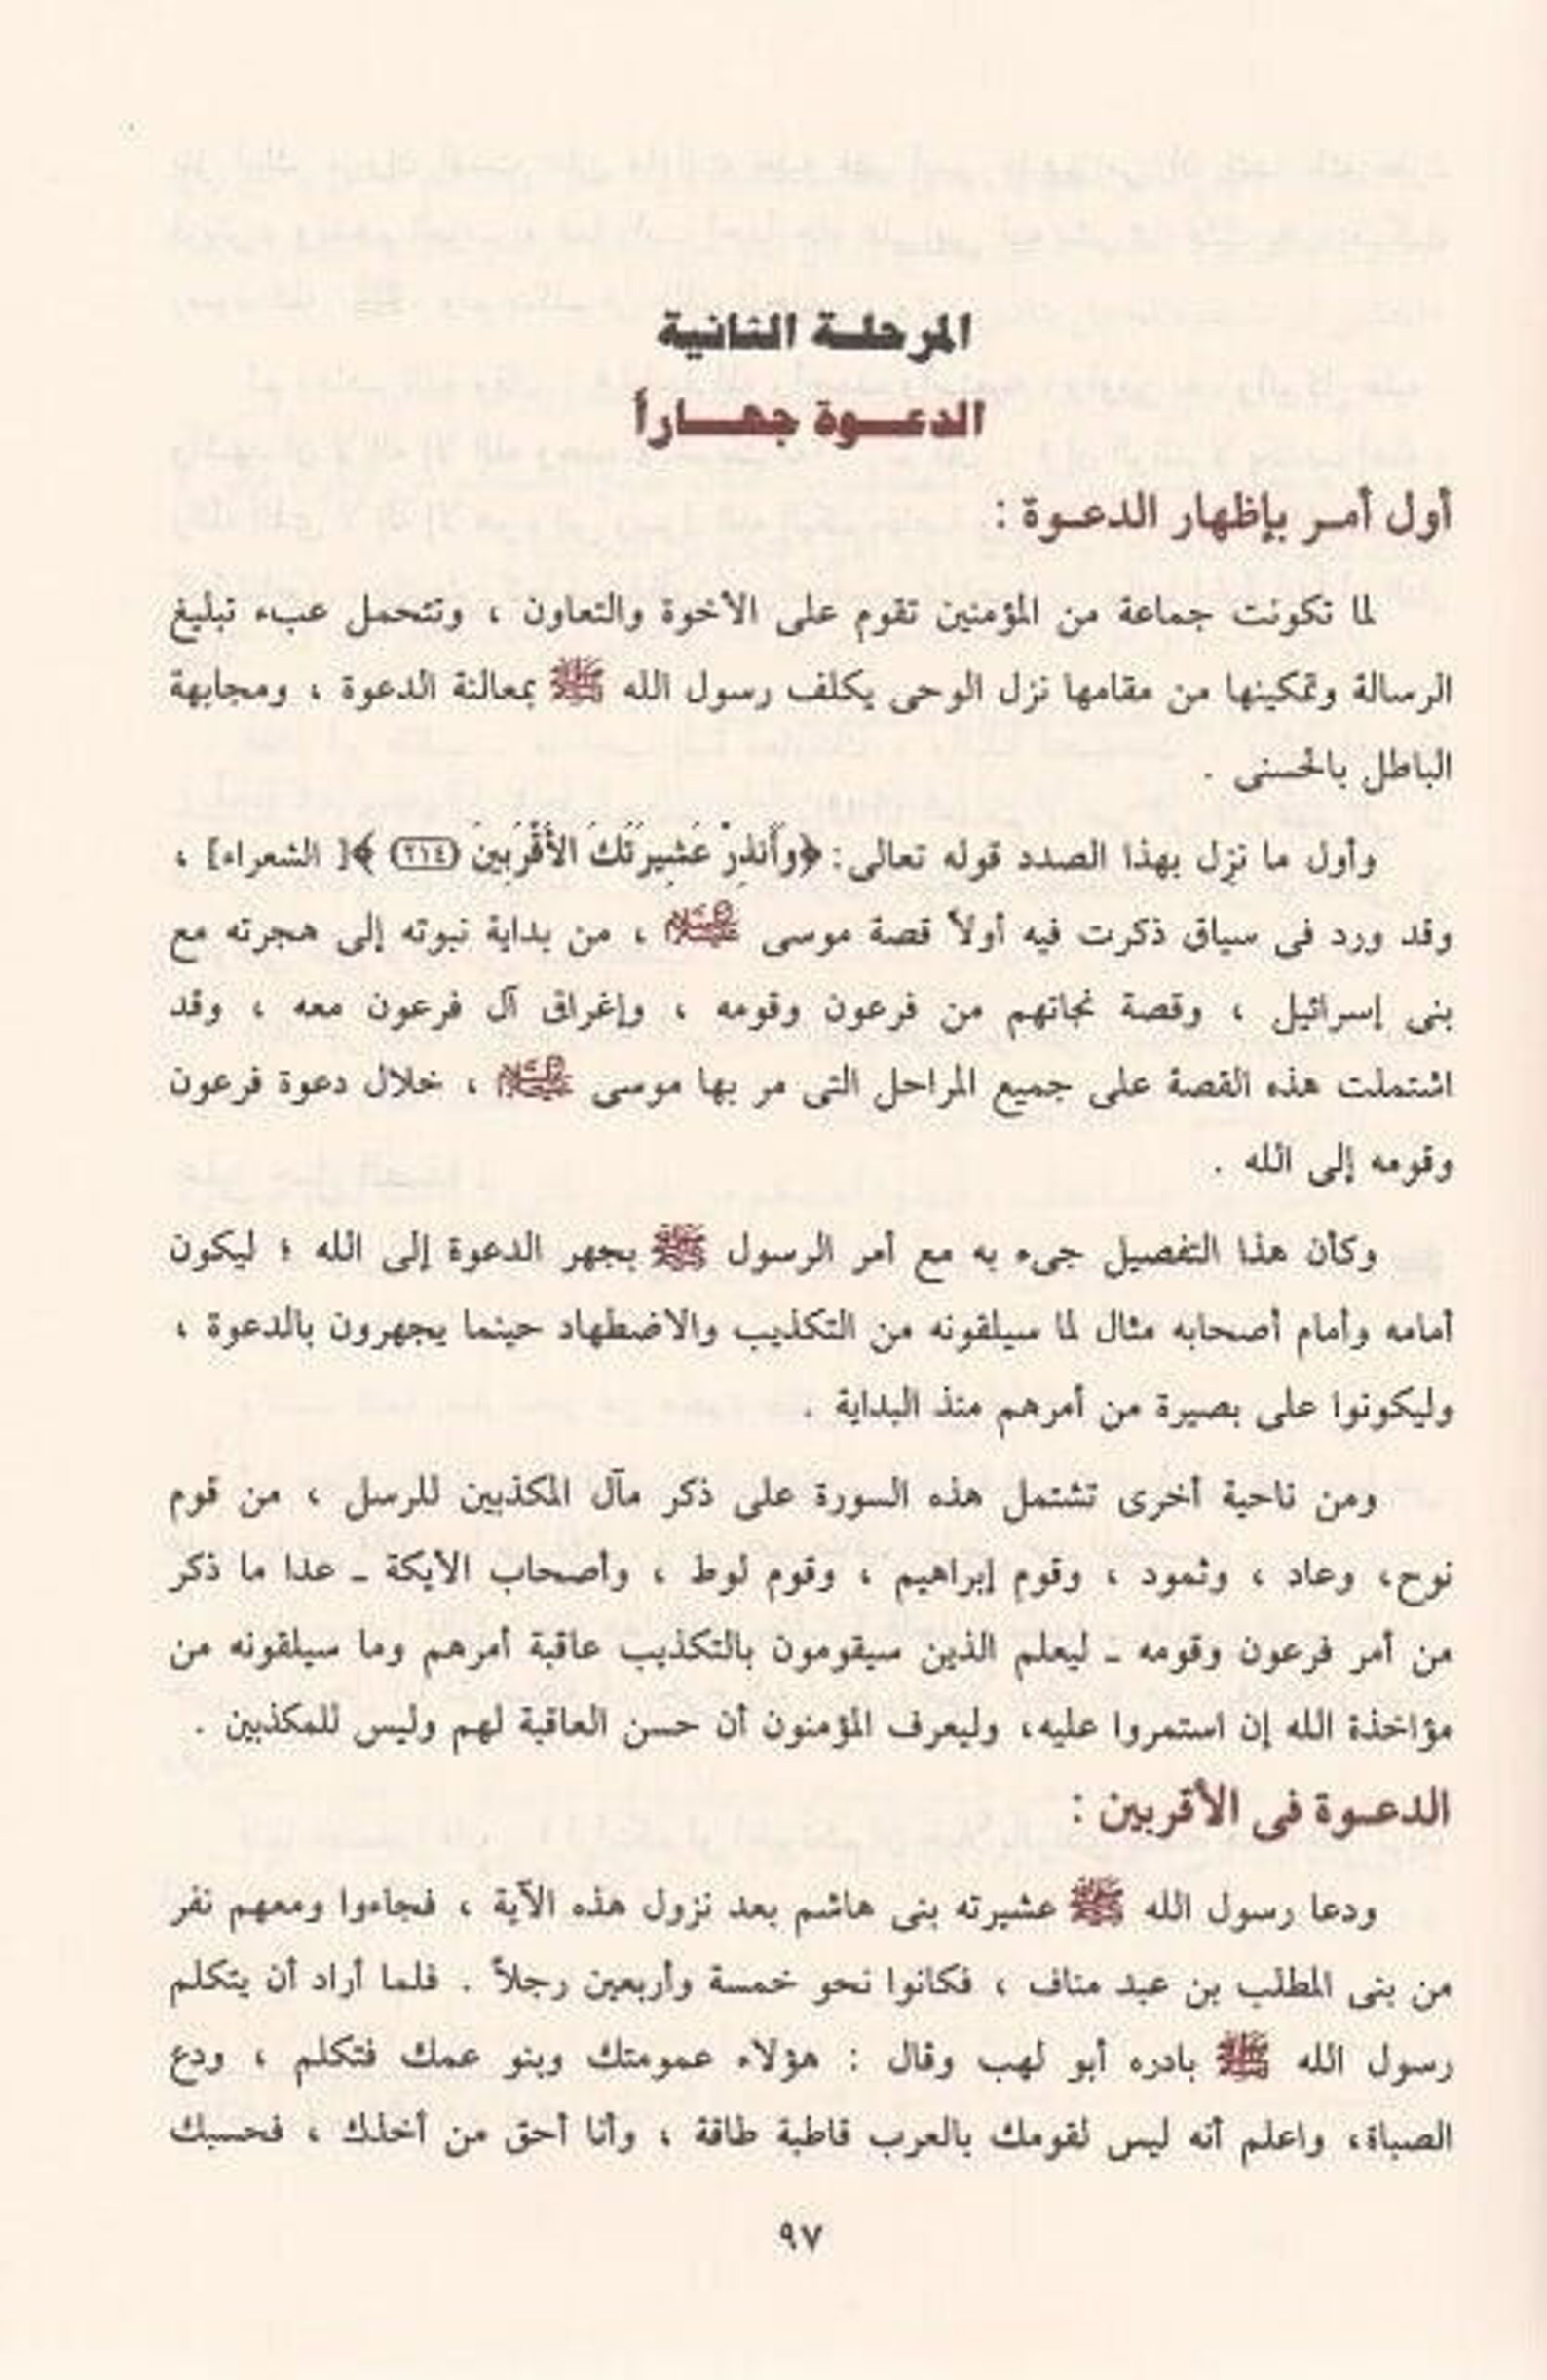 المرحلـة الثانية
الدعـــوة جهـــاراً
أول أمـر بإظهار الدعـوة :
لما تكونت جماعة من المؤمنين تقوم على الأخوة والتعاون ، وتتحمل عبء تبليغ
الرسالة وتمكينها من مقامها نزل الوحى يكلف رسول الله ﷺ بمعالنة الدعوة ، ومجابهة
الباطل بالحسنى .
وأول ما نزل بهذا الصدد قوله تعالى: ﴿وَأَنذِرْ عَشِيرَتَكَ الأَقْرَبِينَ (٢١٤)﴾[ الشعراء] ،
وقد ورد فى سياق ذكرت فيه أولاً قصة موسى عليه السلام ، من بداية نبوته إلى هجرته مع
بنى إسرائيل ، وقصة نجاتهم من فرعون وقومه ، وإغراق آل فرعون معه ، وقد
اشتملت هذه القصة على جميع المراحل التى مر بها موسى عليه السلام ، خلال دعوة فرعون
وقومه إلى الله .
وكأن هذا التفصيل جىء به مع أمر الرسول ﷺ بجهر الدعوة إلى الله ؛ ليكون
أمامه وأمام أصحابه مثال لما سيلقونه من التكذيب والاضطهاد حينما يجهرون بالدعوة ،
وليكونوا على بصيرة من أمرهم منذ البداية .
ومن ناحية أخرى تشتمل هذه السورة على ذكر مآل المكذبين للرسل ، من قوم
نوح، وعاد ، وثمود ، وقوم إبراهيم ، وقوم لوط ، وأصحاب الأيكة ـ عدا ما ذكر
من أمر فرعون وقومه ـ ليعلم الذين سيقومون بالتكذيب عاقبة أمرهم وما سيلقونه من
مؤاخذة الله إن استمروا عليه، وليعرف المؤمنون أن حسن العاقبة لهم وليس للمكذبين .
الدعـوة فى الأقربين :
ودعا رسول الله ﷺ عشيرته بنى هاشم بعد نزول هذه الآية ، فجاءوا ومعهم نفر
من بنى المطلب بن عبد مناف ، فكانوا نحو خمسة وأربعين رجلاً . فلما أراد أن يتكلم
رسول الله ﷺ بادره أبو لهب وقال : هؤلاء عمومتك وبنو عمك فتكلم ، ودع
الصباة، واعلم أنه ليس لقومك بالعرب قاطبة طاقة ، وأنا أحق من أخذك ، فحسبك
٩٧